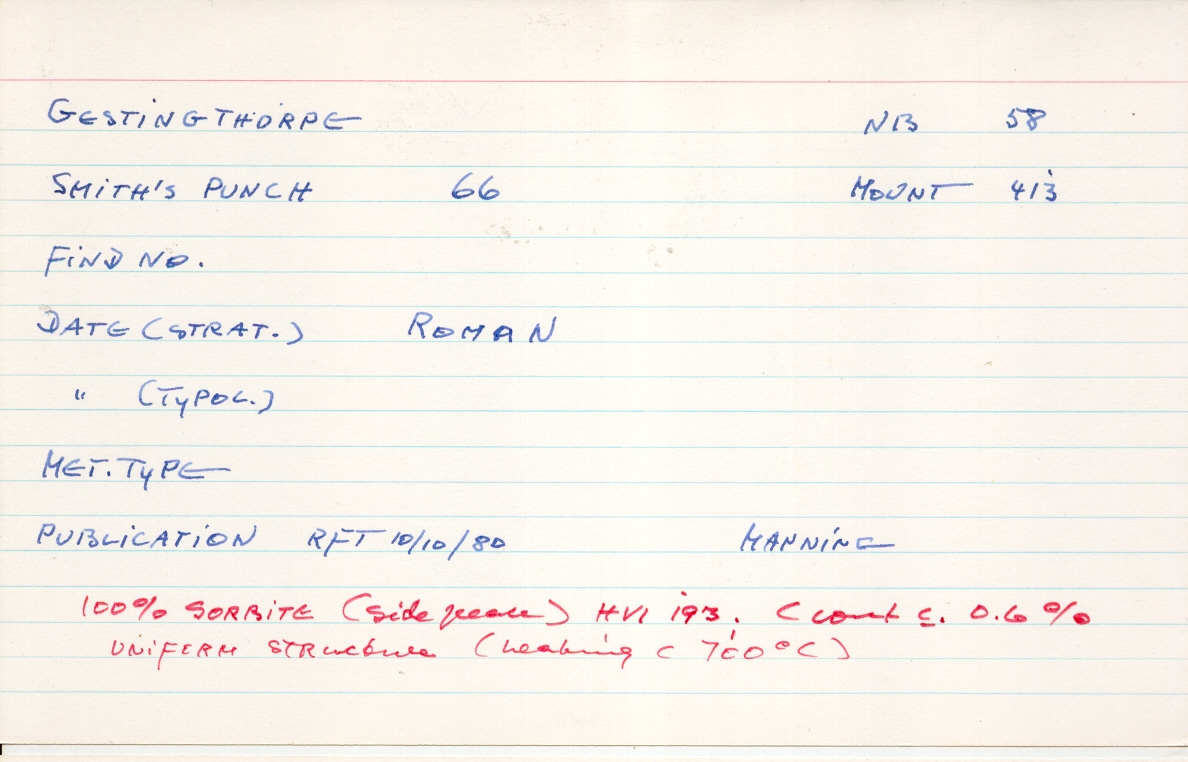 GESTINGTHORPE NB 58
SMITH'S PUNCH 66 MOUNT 413
FIND NO.
DATE (STRAT.) ROMAN
" (TYPOL.)
MET. TYPE
PUBLICATION RFT 10/10/80 MANNING
100% SORBITE (side piece) HV1 193. C cont c. 0.6%
UNIFORM STRUCTURE (heating c 700°C)